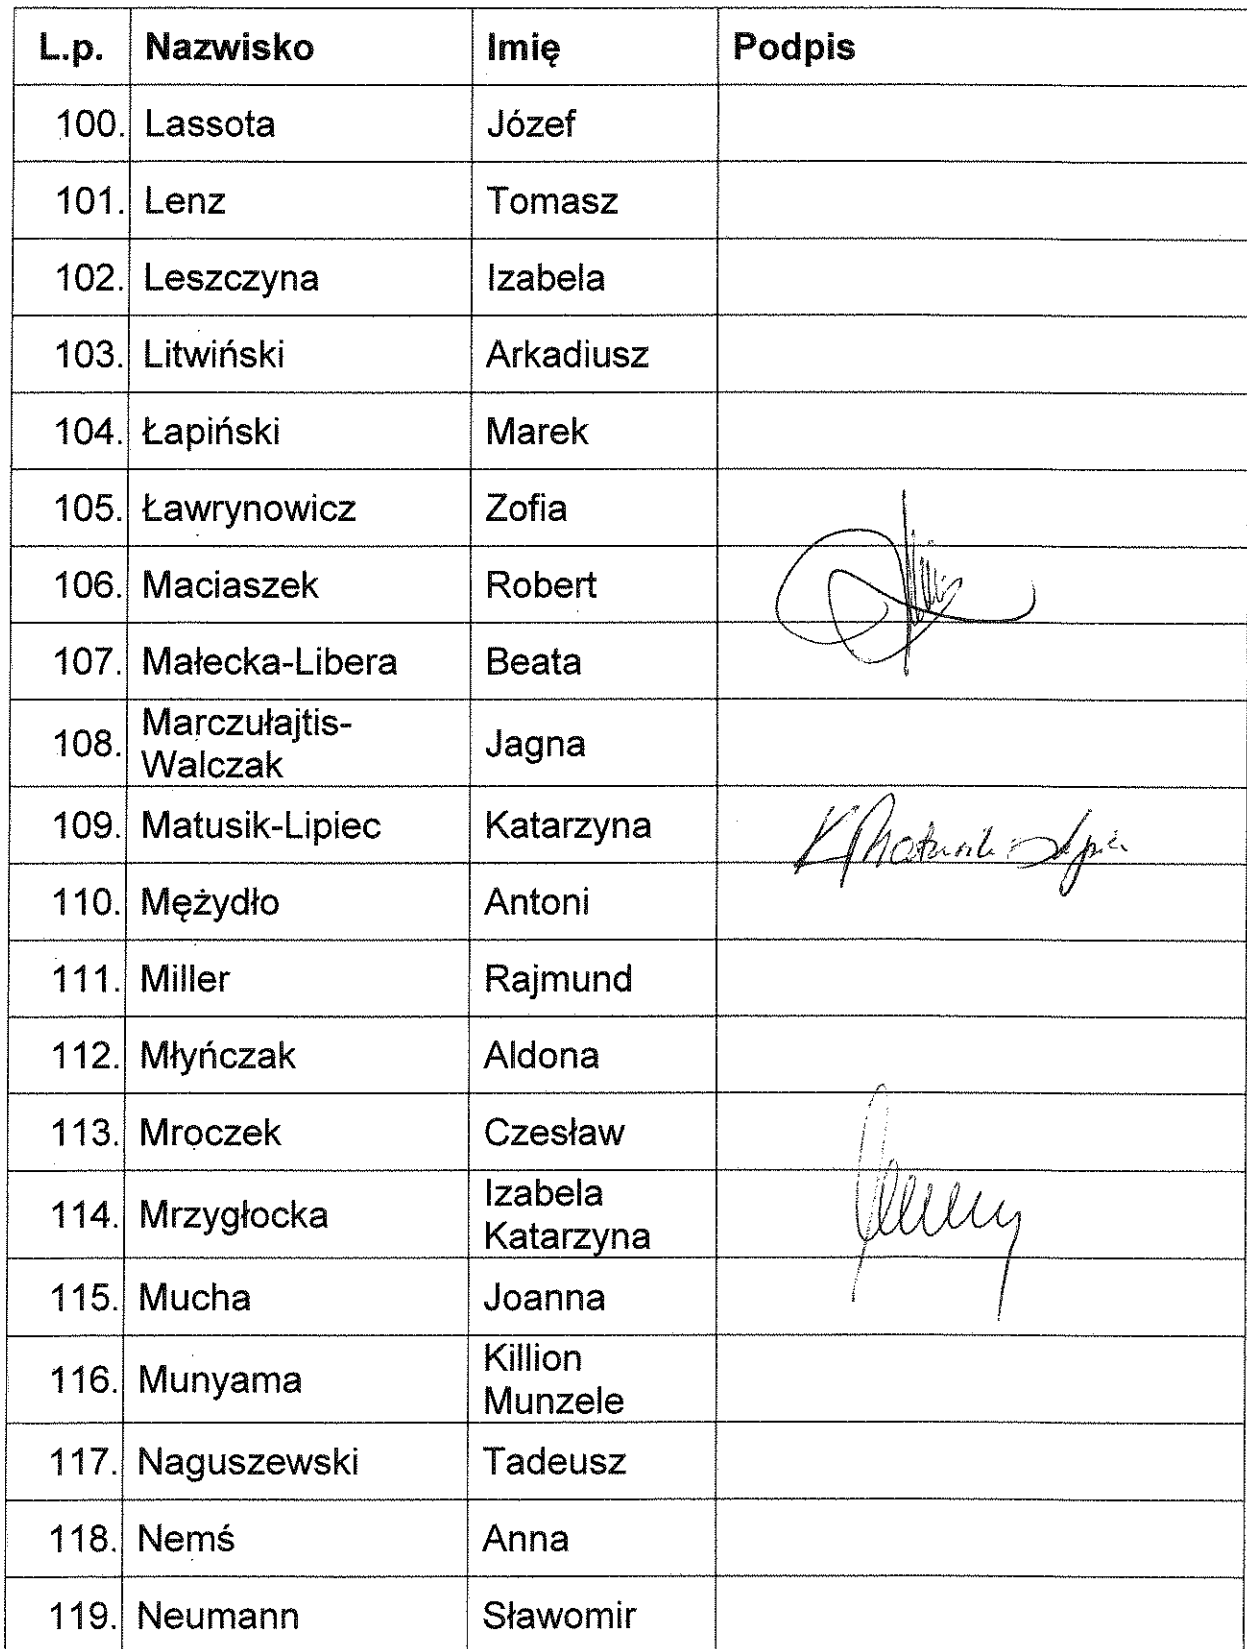 L.p. Nazwisko Imię Podpis
100. Lassota Józef
101. Lenz Tomasz
102. Leszczyna Izabela
103. Litwiński Arkadiusz
104. Łapiński Marek
105. Ławrynowicz Zofia
106. Maciaszek Robert
107. Małecka-Libera Beata
108. Marczułajtis-
Walczak Jagna
109. Matusik-Lipiec Katarzyna K Matusik-Lipiec
110. Mężydło Antoni
111. Miller Rajmund
112. Młyńczak Aldona
113. Mroczek Czesław
114. Mrzygłocka Izabela
Katarzyna
115. Mucha Joanna
116. Munyama Killion
Munzele
117. Naguszewski Tadeusz
118. Nemś Anna
119. Neumann Sławomir